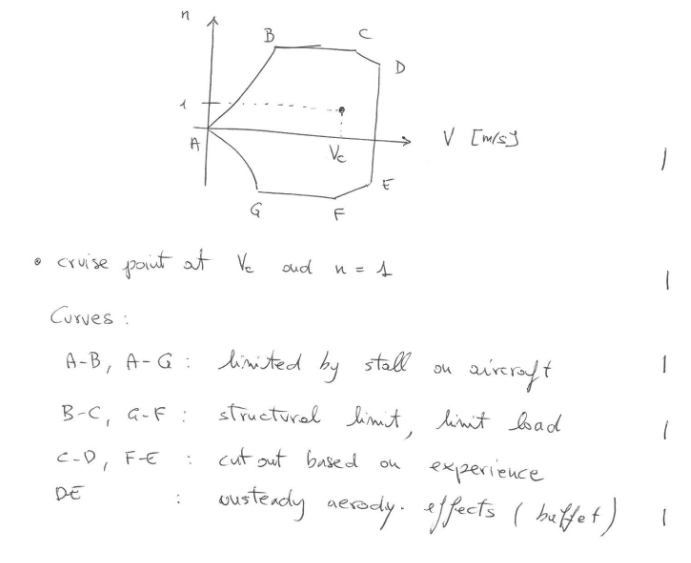 n
B
C
D
1
A
Vc
V [m/s]
|
E
G
F
• cruise point at Vc and n = 1 |
Curves :
A-B, A-G : limited by stall on aircraft |
B-C, G-F : structural limit, limit load |
C-D, F-E : cut out based on experience
DE : unsteady aerody. effects (buffet) |